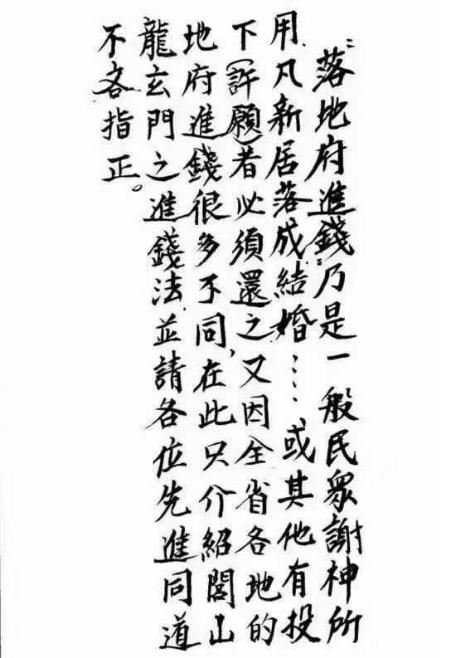 “落地府進錢”乃是一般民衆謝神所
用.凡新居落成.結婚……,或其他有投
下(許願)者必須還之,又因全省各地的
地府進錢很多不同,在此只介紹閭山
龍玄門之進錢法.並請各位先進同道
不各指正。